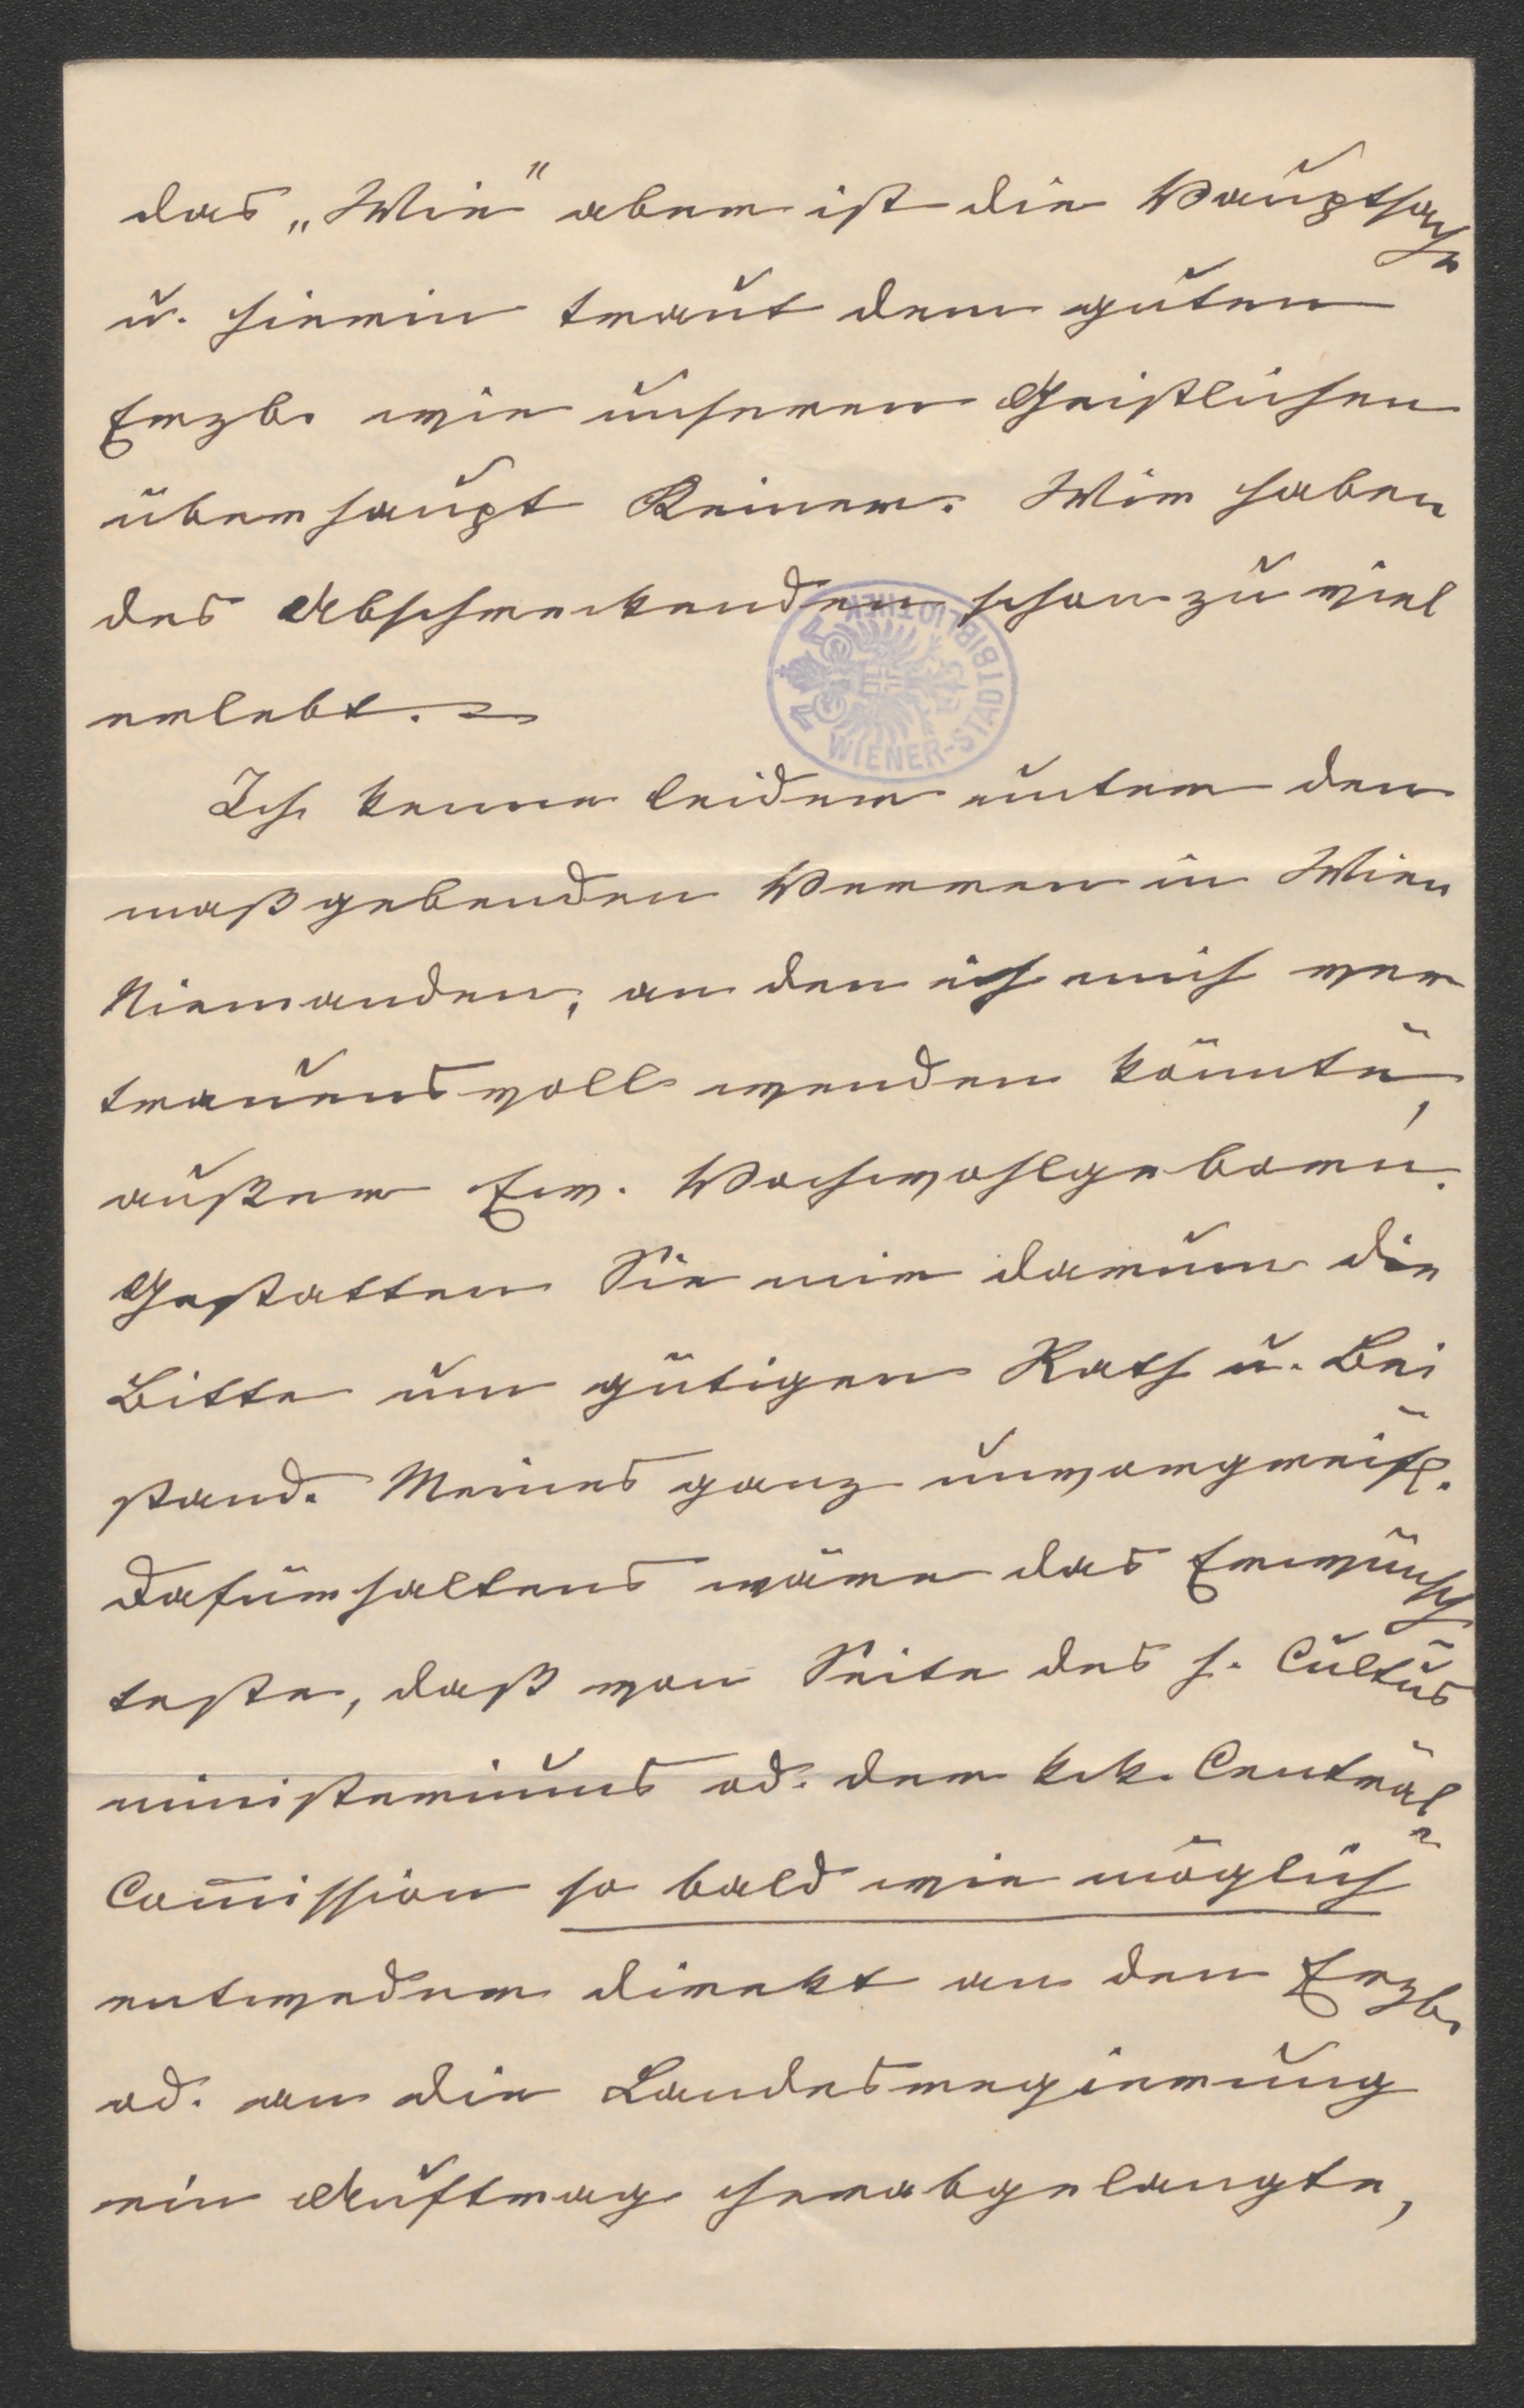 das „Wie" aber ist die Hauptsache
u. hierin traut dem guten
Erzb. wie unseren Geistlichen
überhaupt Keiner. Wir haben
des Abschreckenden schon zu viel
erlebt. –
WIENER-STADTBIBLIOTHEK
Ich kenne leider unter den
maßgebenden Herren in Wien
Niemanden, an den ich mich ver
trauensvoll wenden könnte,
außer Euer. Hochwohlgeboren.
Gestatten Sie mir darum die
Bitte um gütigen Rath u. Bei
stand. Meines ganz unvorgreifl.
Dafürhaltens wäre das Erwünsch
teste, daß von Seite des h. Cultus
ministeriums od. der k. k. Central
Com̅ission so bald wie möglich
entweder direkt an den Erzb.
od. an die Landesregierung
ein Auftrag herabgelangte,